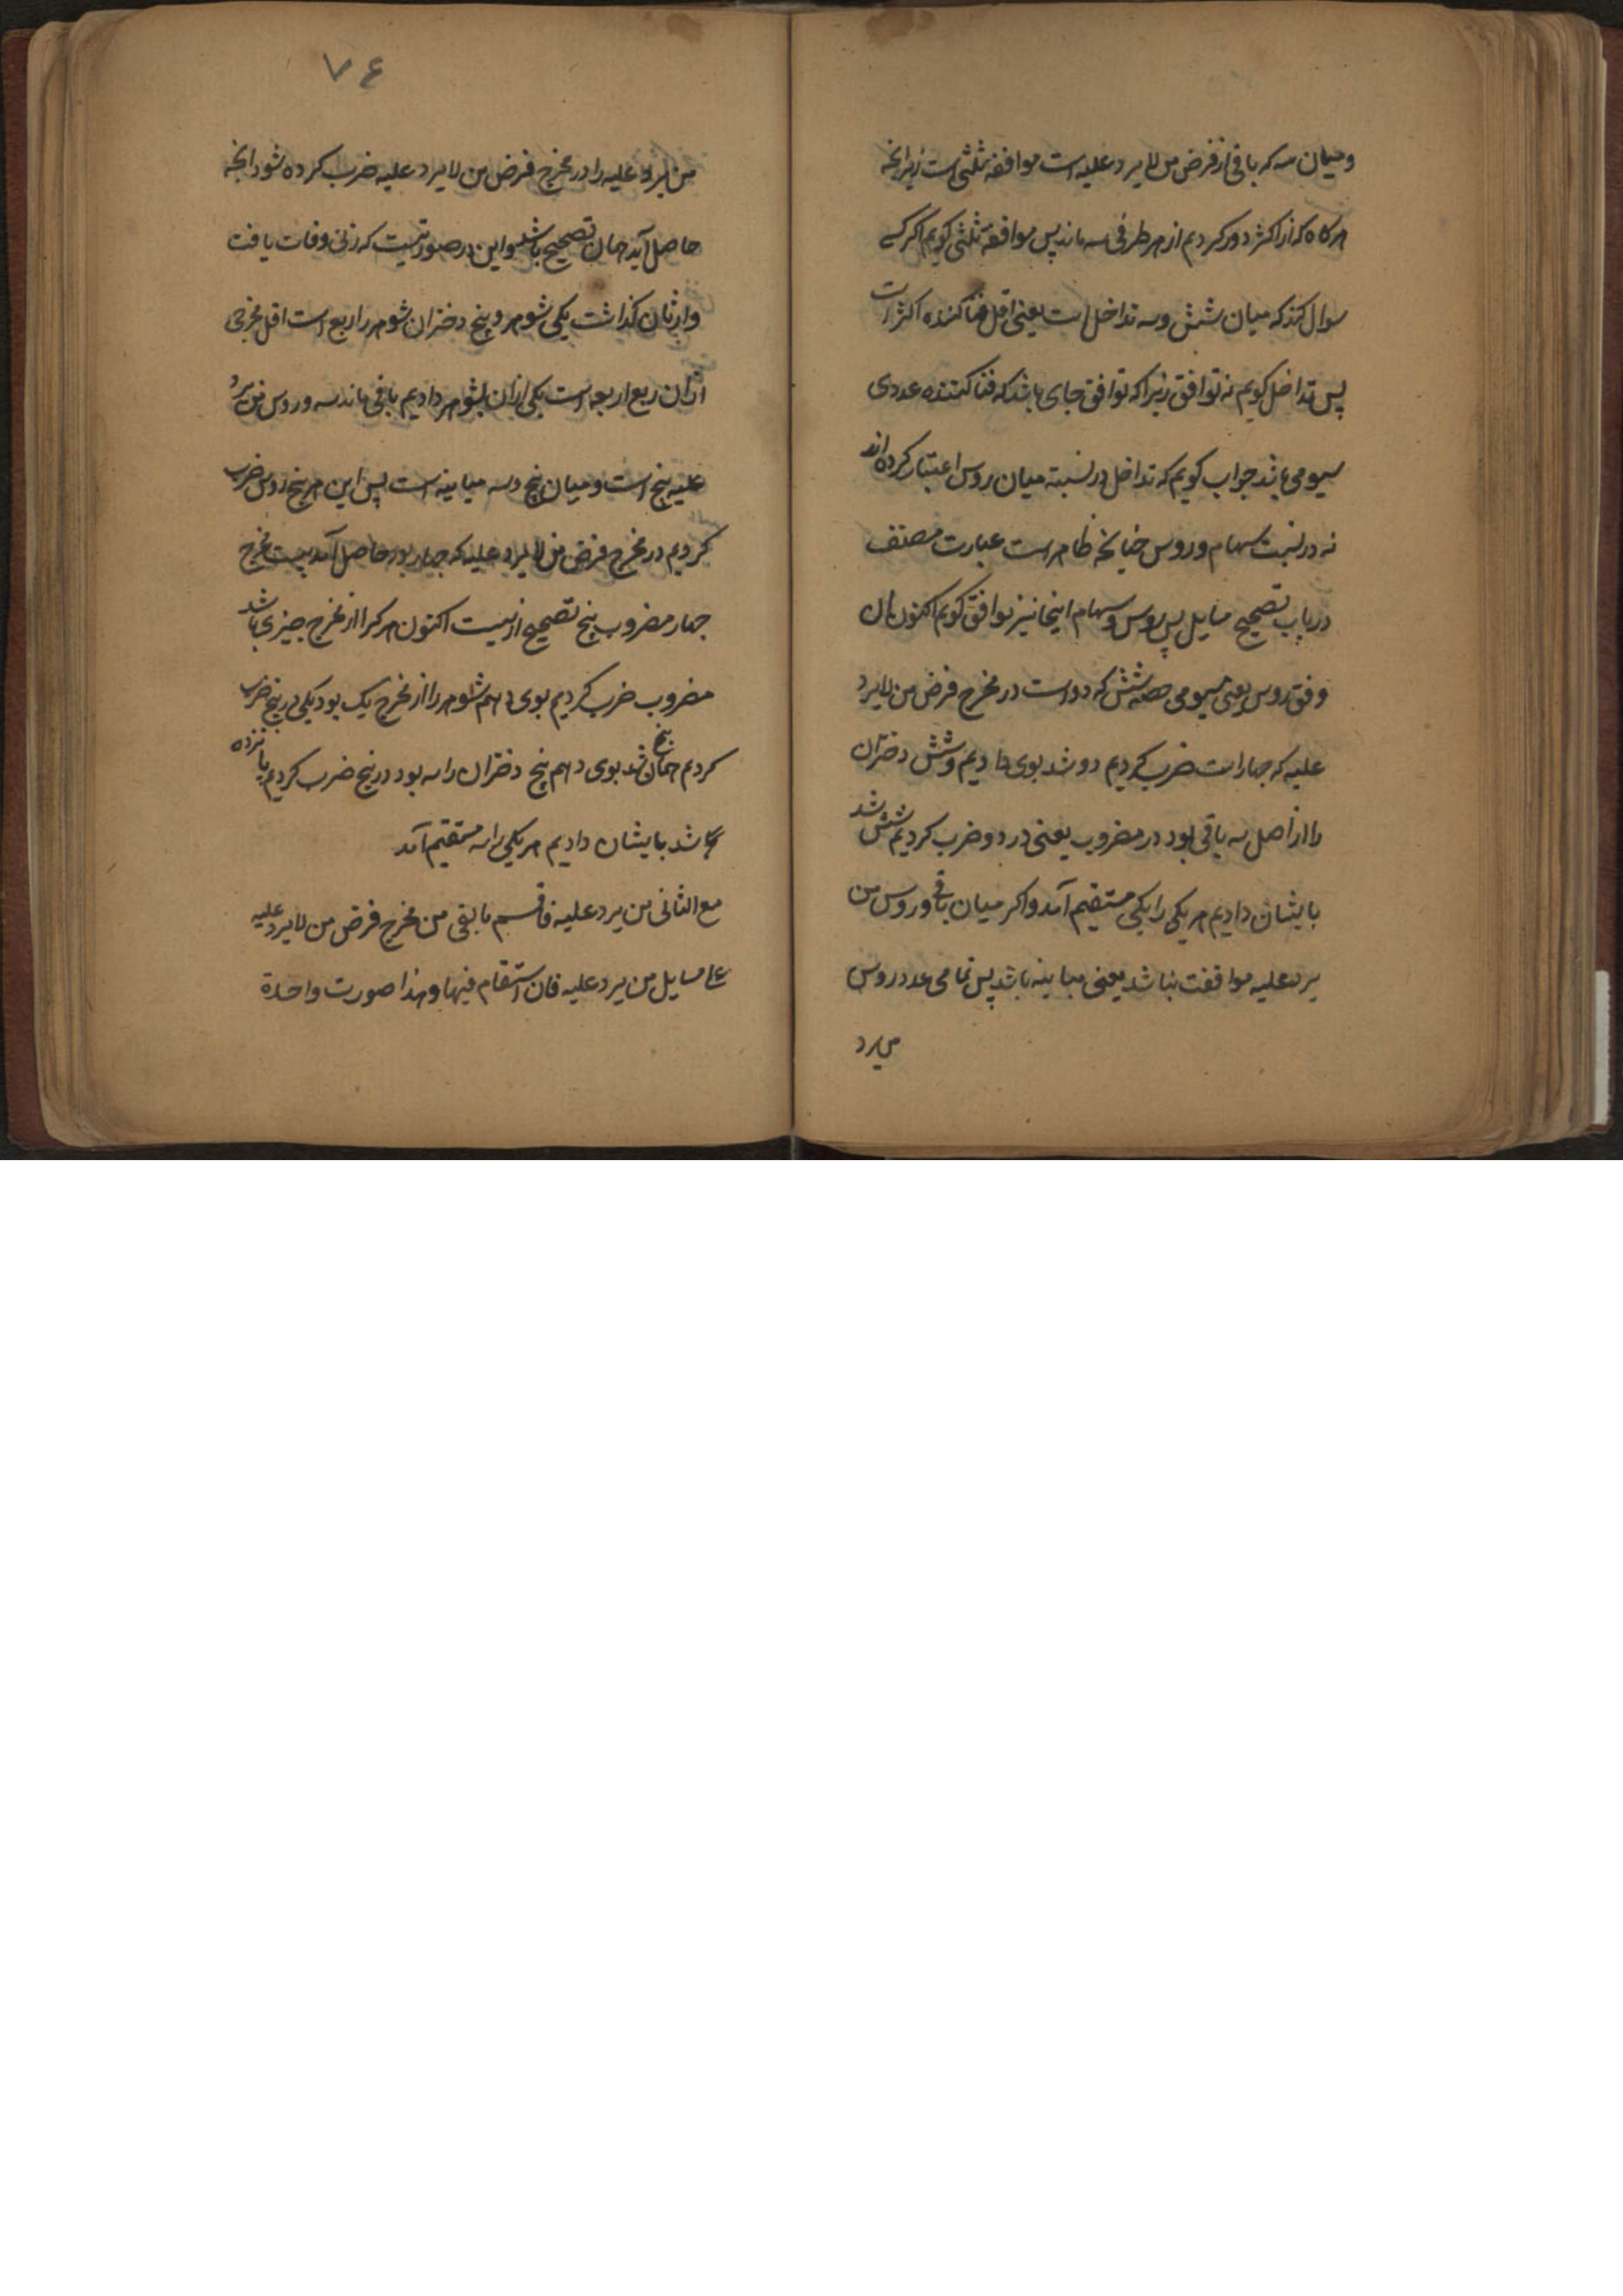 و میان سه که باقی از فرض من لا یرد علیه است موافقه ثلثی است زیرانچه
هرکاه که از اکثر دور کردیم از هر طرفی سه ماند پس موافقه ثلثی کویم اکر کسی
سوال کند که میان شش و سه تداخل است یعنی اقل فنا کننده اکثر است
پس تداخل کویم نه توافق زیرا که توافق جای باشد که فنا کننده عددی
سیومی باشد جواب کویم که تداخل در نسبته میان روس اعتبار کرده اند
نه در نسبت سهام و روس چنانچه ظاهر است عبارت مصنف
در باب تصحیح مسایل پس روس و سهام اینجا نیز توافق کویم اکنون ان
وفق روس یعنی سیومی حصه شش که دو است در مخرج فرض من لا یرد
علیه که چهار است ضرب کردیم دو شد بوی دادیم و شش دختران
را از اصل سه باقی بود در مضروب یعنی در دو ضرب کردیم شش شد
بایشان دادیم هر یکی را یکی مستقیم آمد و اکر میان باقی و روس من
یرد علیه موافقت نباشد یعنی مباینه باشد پس تمامی عدد روس
من یرد
۷۶
من یرد علیه را در مخرج فرض من لا یرد علیه ضرب کرده شود انچه
حاصل آید همان تصحیح باشد و این در صورتیست که زنی وفات یافت
وارثان کذاشت یکی شوهر و پنج دختران شوهر را ربع است اقل مخرجی
ازان ربع اربعه است یکی ازان بشوهر دادیم باقی ماند سه و روس من یرد
علیه پنج است و میان پنج و سه مباینه است پس این هر پنج روس ضرب
کردیم در مخرج فرض من لا یرد علیه که چهار بود حاصل آمد بیست مخرج
چهار مضروب پنج تصحیح از بیست اکنون هر کرا از مخرج چیزی باشد
مضروب ضرب کردیم بوی دهم شوهر را از مخرج یک بود یکی در پنج ضرب
کردیم همان پنج شد بوی دهم پنج دختران را سه بود در پنج ضرب کردیم پانزده
شد بایشان دادیم هر یکی را سه مستقیم آمد
مع الثانی من یرد علیه فاقسم ما بقی من مخرج فرض من لا یرد علیه
علی مسایل من یرد علیه فان استقام فیها و هذا صورت واحدة